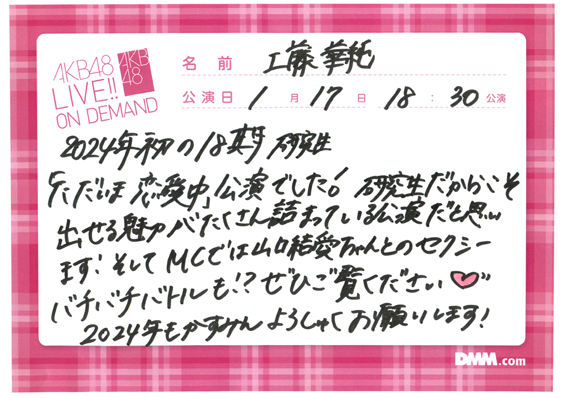 AKB48
LIVE!!
ON DEMAND
AKB
48
名前 工藤華純
公演日 1月17日 18:30公演
2024年初の18期研究生
「ただいま恋愛中」公演でした! 研究生だからこそ
出せる魅力がたくさん詰まっている公演だと思い
ます! そしてMCでは山口結愛ちゃんとのセクシー
バチバチバトルも!? ぜひご覧ください
2024年もかすみんよろしくお願いします!
DMM.com